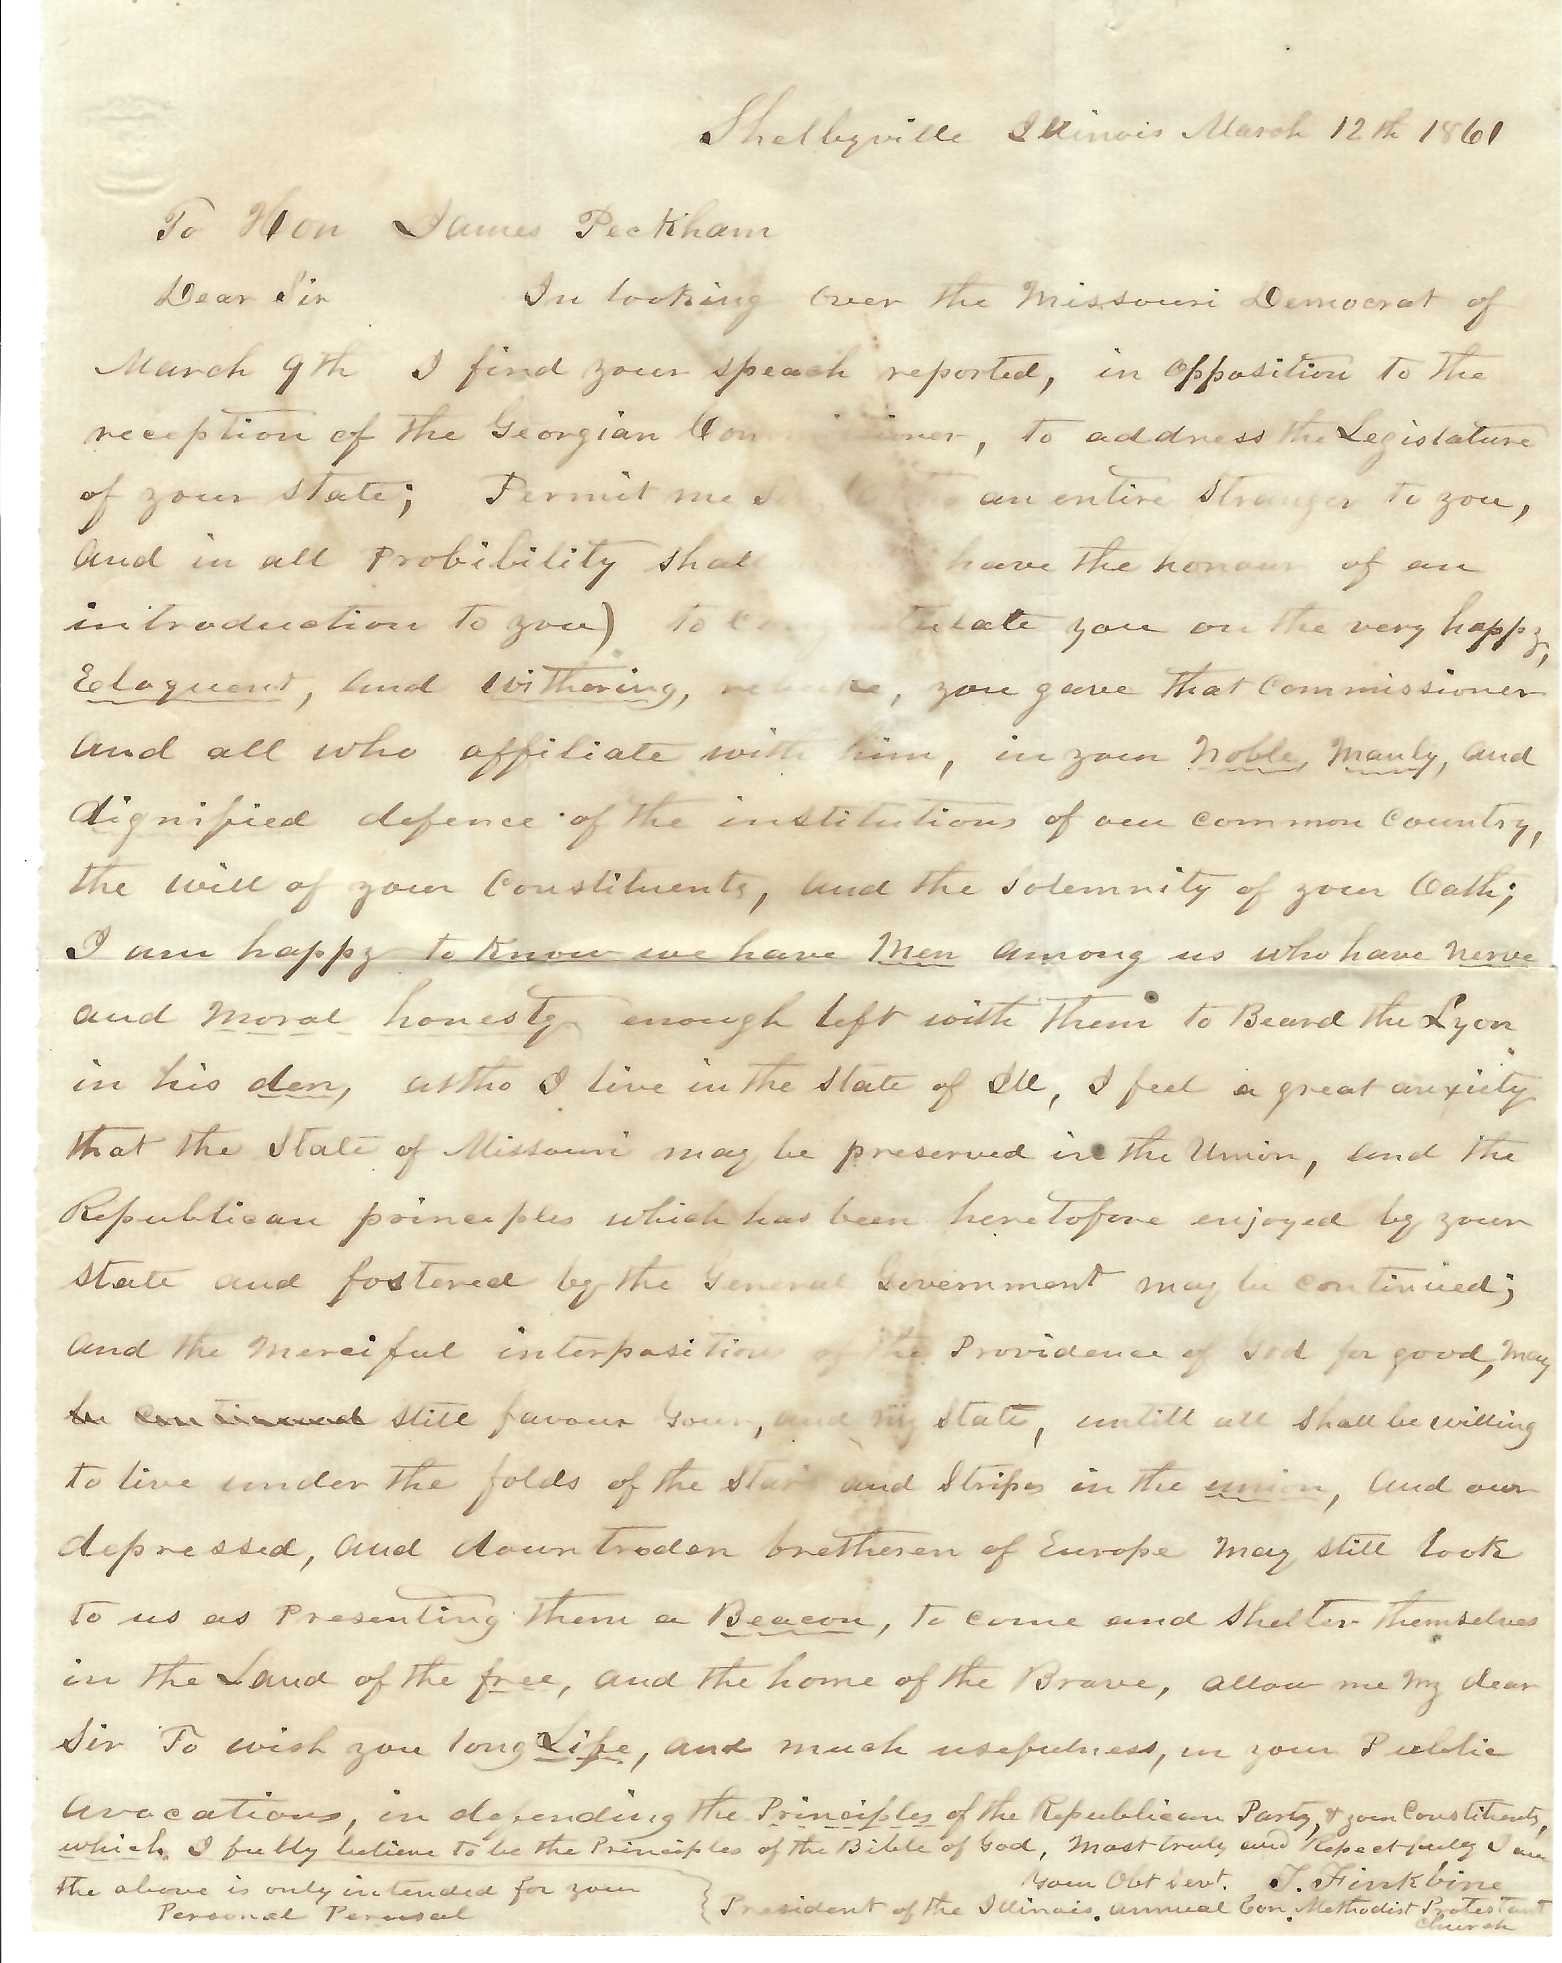 Shelbyville Illinois March 12th 1861
To Hon James Peckham
Dear Sir In looking over the Missouri Democrat of
March 9th I find your speach reported, in opposition to the
reception of the Georgian Com issioner, to address the Legislature
of your state; Permit me an entire Stranger to you,
and in all Probibility shall have the honour of an
introduction to you) to Co tulate you on the very happy,
Eloquent, and withering, rebuke, you gave that Commissioner
and all who affiliate with him, in your Noble, Manly, and
dignified defence of the institutions of our common country,
the will of your Constituents, and the Solemnity of your Oath;
I am happy to know we have Men among us who have nerve
and Moral honesty enough left with them to Beard the Lyon
in his den, altho I live in the State of Ill, I feel a great anxiety
that the State of Missouri may be preserved in the Union, and the
Republican principles which has been heretofore enjoyed by your
state and fostered by the General Government may be continued;
and the Merciful interposition of the Providence of God for good, May
be continued still favour your, and my State, untill all shall be willing
to live under the folds of the Stars and Stripes in the union, and our
depressed, and downtroden bretheren of Europe May still look
to us as Presenting them a Beacon, to come and shelter themselves
in the Land of the free, and the home of the Brave, allow me My dear
Sir To wish you long Life, and much usefulness, in your Public
avocations, in defending the Principles of the Republican Party, & your Constituents,
which I fully believe to be the Principles of the Bible of God, Most truly and Respectfully I am
Your Obt Servt. J. Finkbine
the above is only intended for your
Personal Perusal
President of the Illinois annual Con. Methodist Protestant
Church